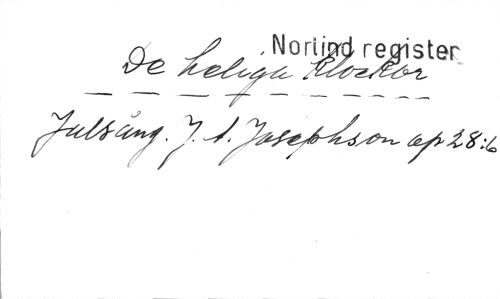 Norlind register
De heliga klockor
Julsång. J. A. Josephson op 28:6